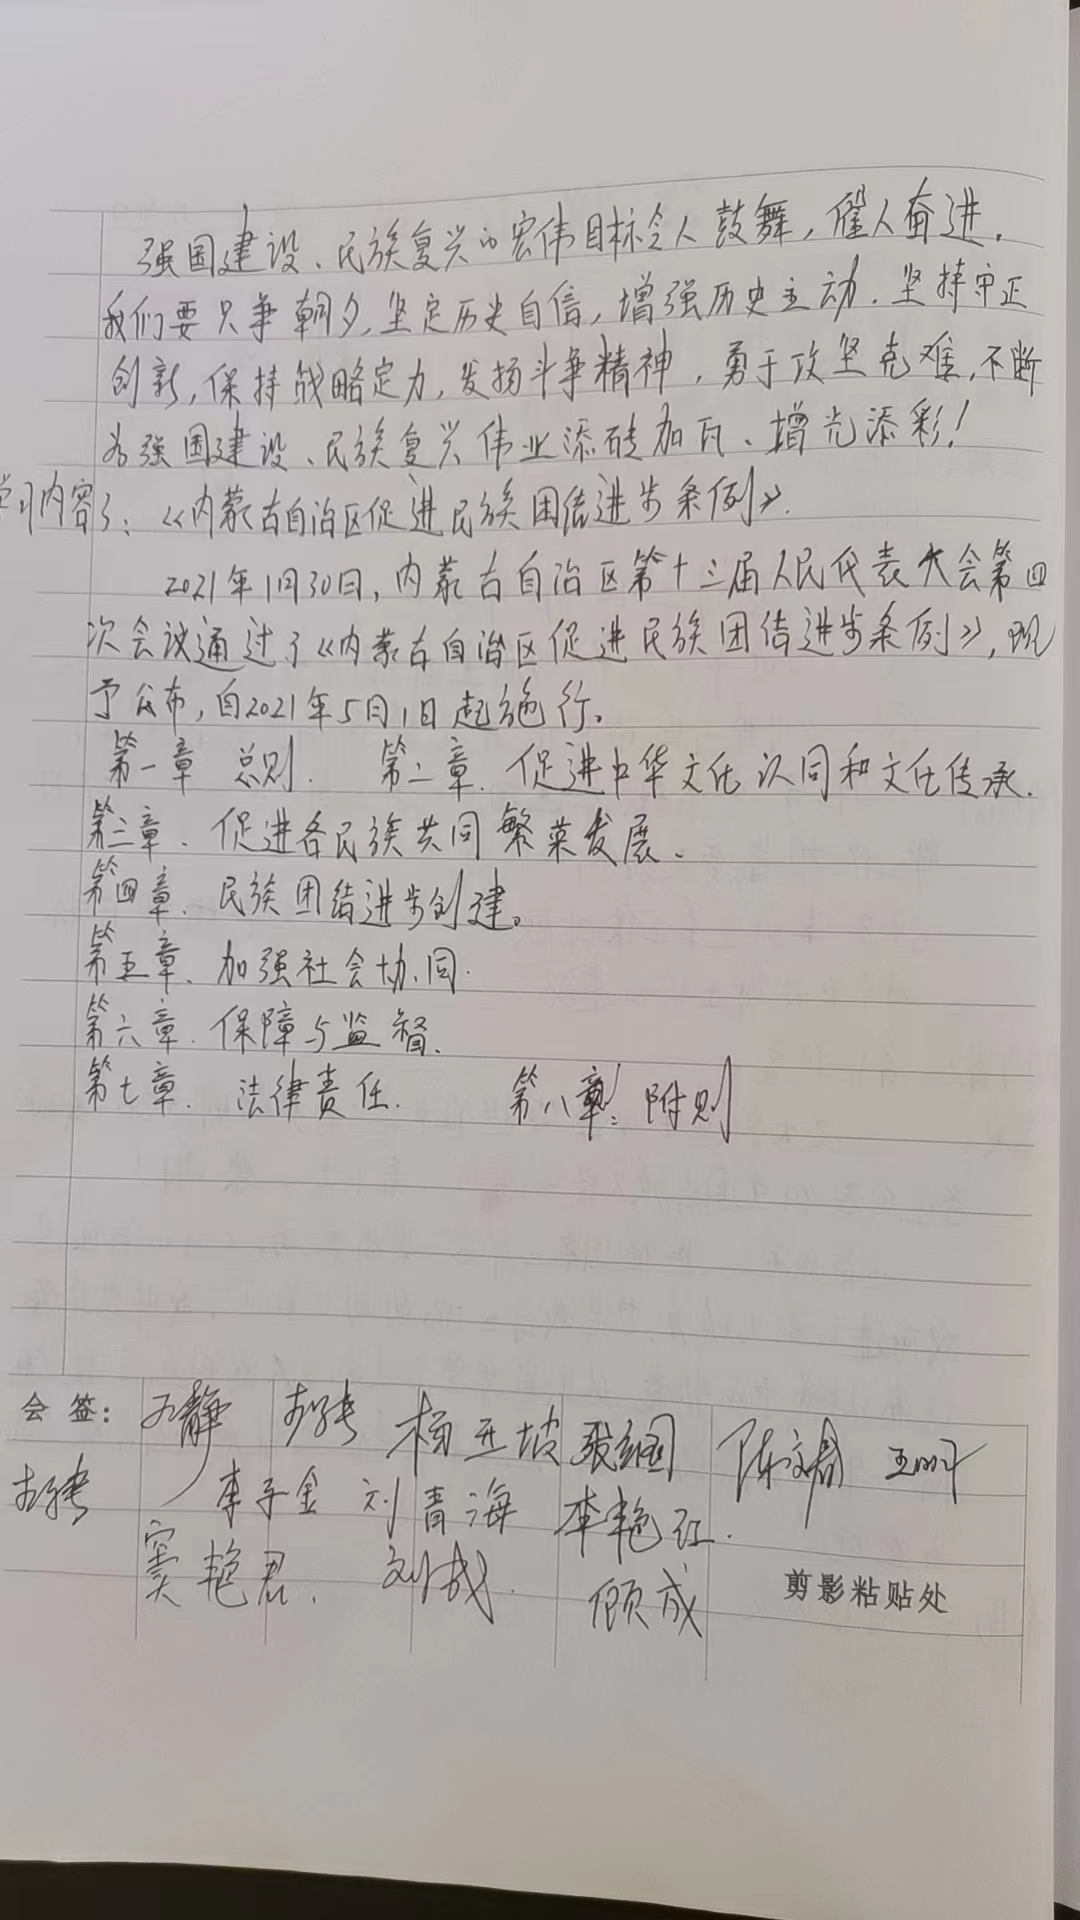 强国建设、民族复兴的宏伟目标令人鼓舞，催人奋进。
我们要只争朝夕，坚定历史自信，增强历史主动，坚持守正
创新，保持战略定力，发扬斗争精神，勇于攻坚克难，不断
为强国建设、民族复兴伟业添砖加瓦、增光添彩！
学习内容3：《内蒙古自治区促进民族团结进步条例》.
2021年1月30日，内蒙古自治区第十三届人民代表大会第四
次会议通过了《内蒙古自治区促进民族团结进步条例》，现
予公布，自2021年5月1日起施行。
第一章 总则. 第二章. 促进中华文化认同和文化传承.
第三章、促进各民族共同繁荣发展、
第四章、民族团结进步创建。
第五章、加强社会协同.
第六章. 保障与监督.
第七章. 法律责任. 第八章：附则
会签： 杨亚坡
李子金 刘青海 李艳红.
窦艳君. 刘成. 顾成 剪影粘贴处